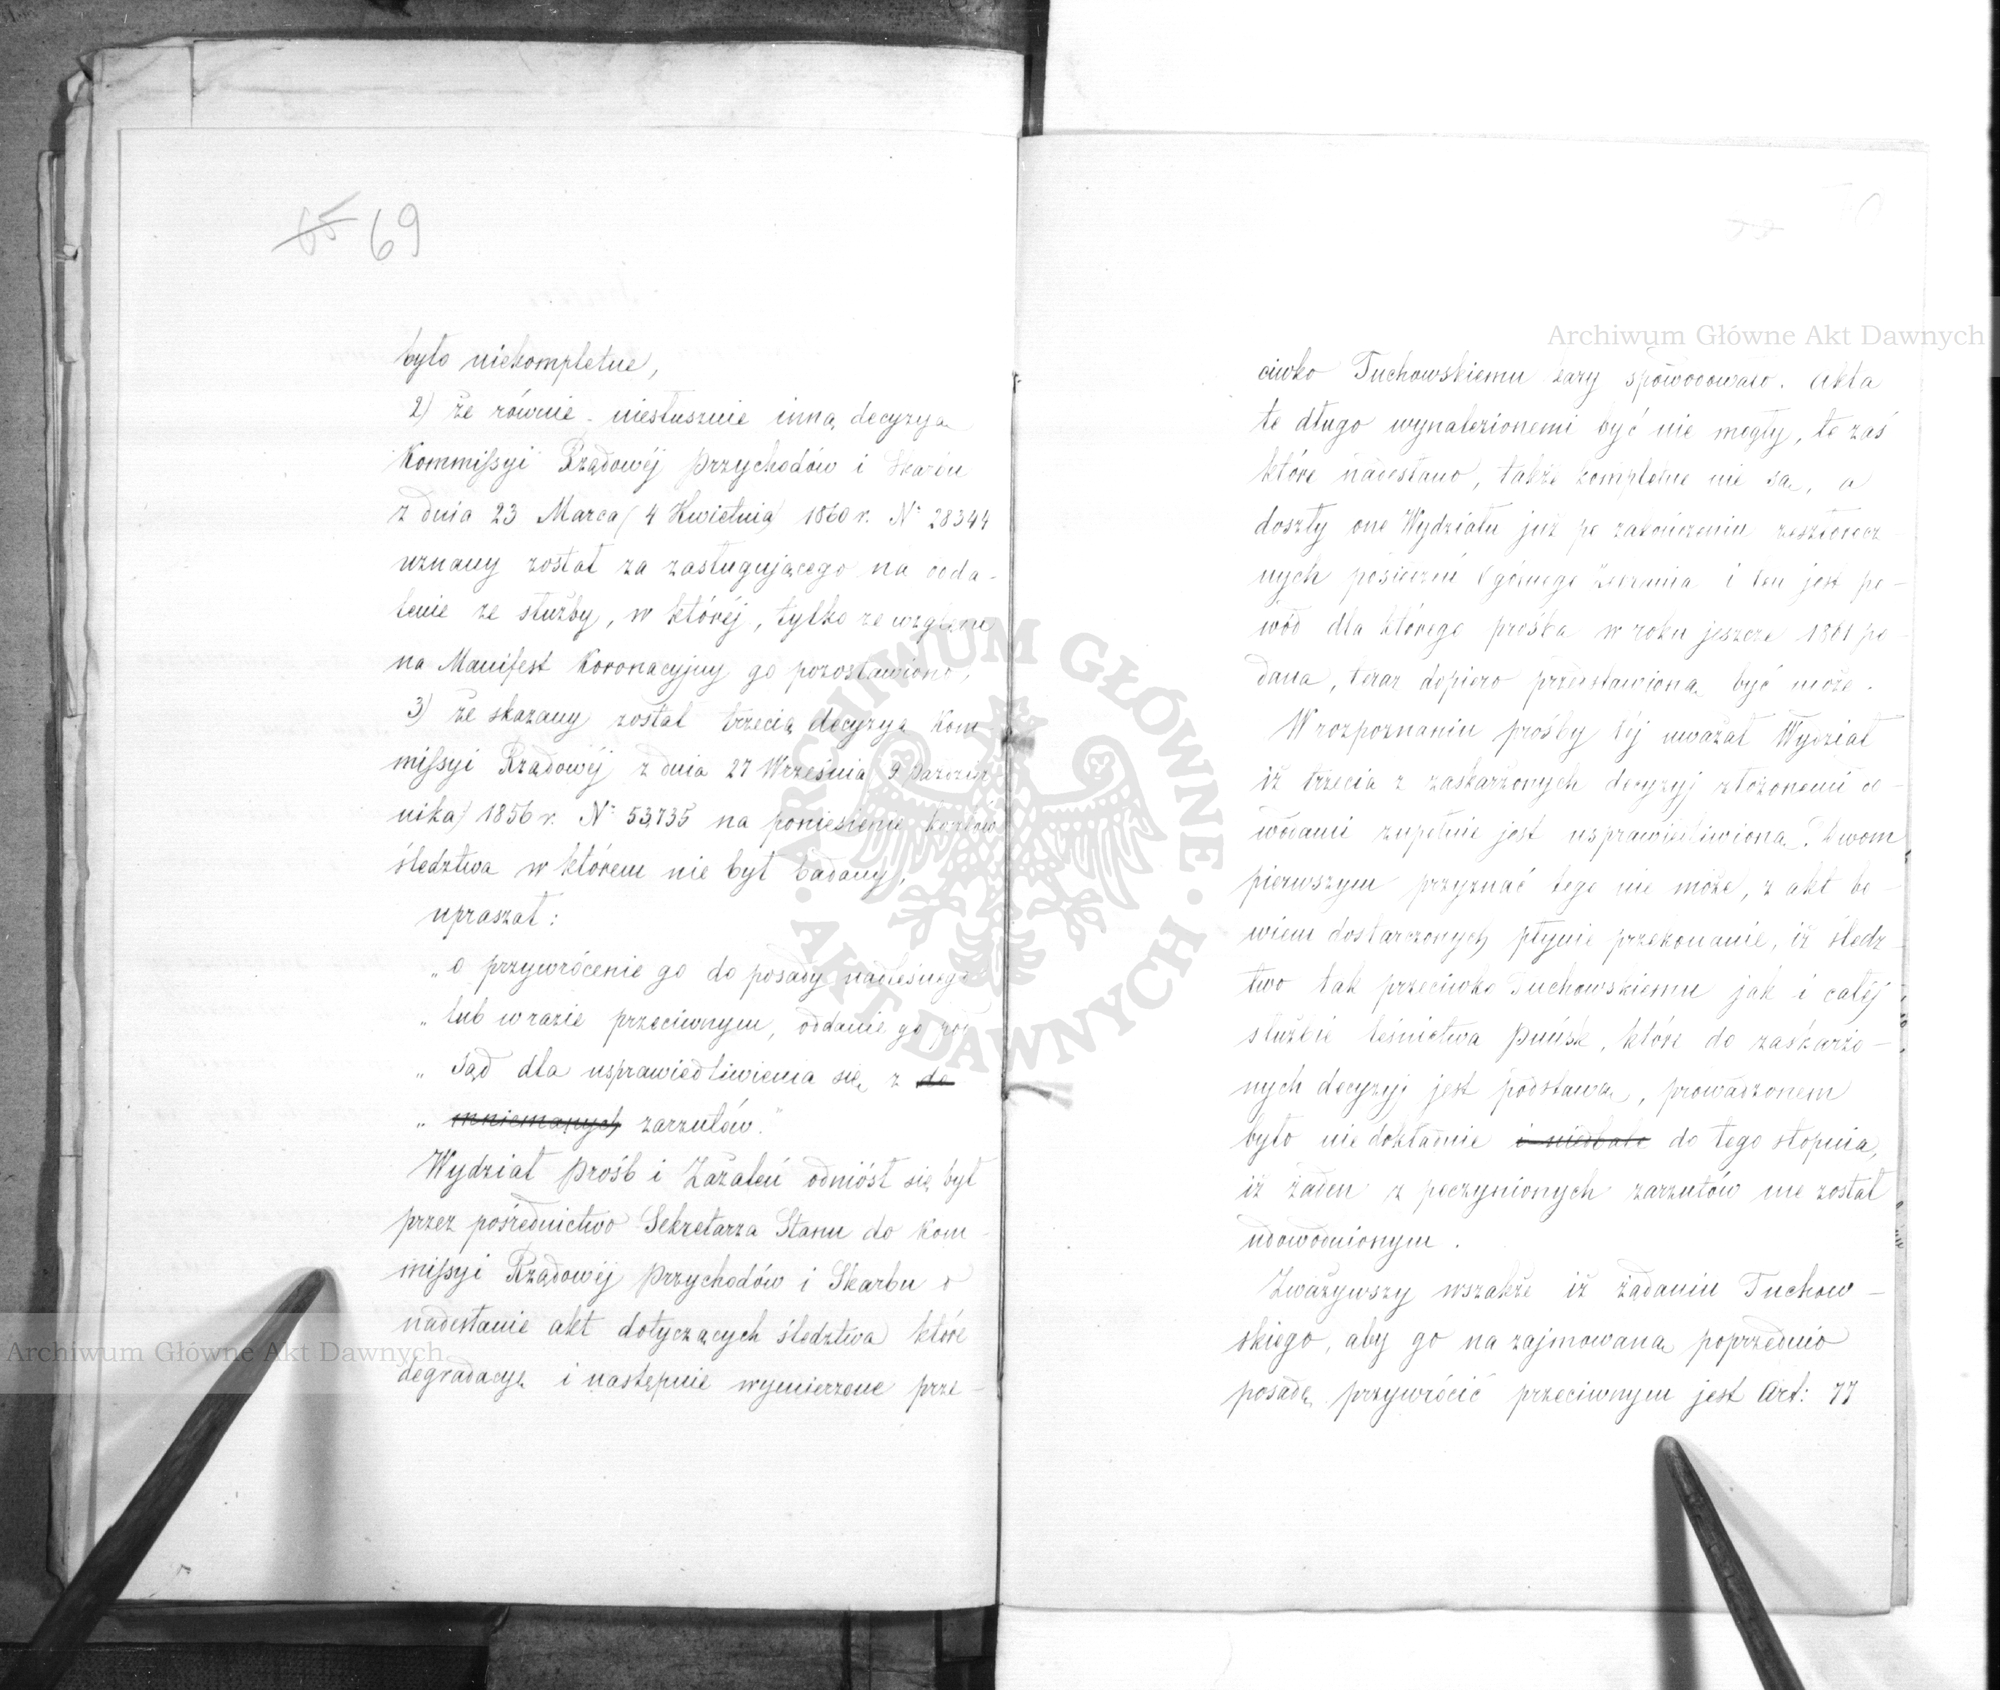 65 69
było niekompletne,
2) że równie niesłusznie inną decyzyą
Kommissyi Rządowéj Przychodów i Skarbu
z dnia 23 Marca (4 Kwietnia) 1860 r. Nº 28344
uznany został za zasługującego na odda-
lenie ze służby, w któréj, tylko ze względu
na Manifest Koronacyjny go pozostawiono,
3) że skazany został trzecią decyzyą Kom
missyi Rządowéj z dnia 27 Września (9 Paździer
nika) 1856 r. Nº 53,735 na poniesienie kosztów
śledztwa w którém nie był badany,
upraszał:
„o przywrócenie go do posady nadleśnego
„lub w razie przeciwnym, oddanie go pod
„Sąd dla usprawiedliwienia się z do
„mniemanych zarzutów."
Wydział Próśb i Zażaleń odniósł się był
przez pośrednictwo Sekretarza Stanu do Kom-
missyi Rządowéj Przychodów i Skarbu o
nadesłanie akt dotyczących śledztwa które
degradacyę i następnie wymierzone prze-
ciwko Tuchowskiemu kary spowodowało. Akta
te długo wynalezionemi być nie mogły, te zaś
które nadesłano, także kompletne nie są, a
doszły one Wydziału już po zakończeniu zeszłorocz
nych posiedzeń Ogólnego Zebrania i ten jest po-
wód dla którego prośba w roku jeszcze 1861 po-
dana, teraz dopiero przedstawioną być może.
W rozpoznaniu prośby téj uważał Wydział
iż trzecia z zaskarżonych decyzyj złożonemi do-
wodami zupełnie jest usprawiedliwioną. Dwom
pierwszym przyznać tego nie może, z akt bo-
wiem dostarczonych płynie przekonanie, iż śledz-
two tak przeciwko Tuchowskiemu jak i całéj
służbie leśnictwa Puńsk, które do zaskarżo-
nych decyzyj jest podstawą, prowadzonem
było niedokładnie i niedbale do tego stopnia,
iż żaden z poczynionych zarzutów nie został
udowodnionym.
Zważywszy wszakże iż żądaniu Tuchow-
skiego, aby go na zajmowaną poprzednio
posadę przywrócić przeciwnym jest Art: 77
Archiwum Główne Akt Dawnych
Archiwum Główne Akt Dawnych
ARCHIWUM GŁÓWNE AKT DAWNYCH